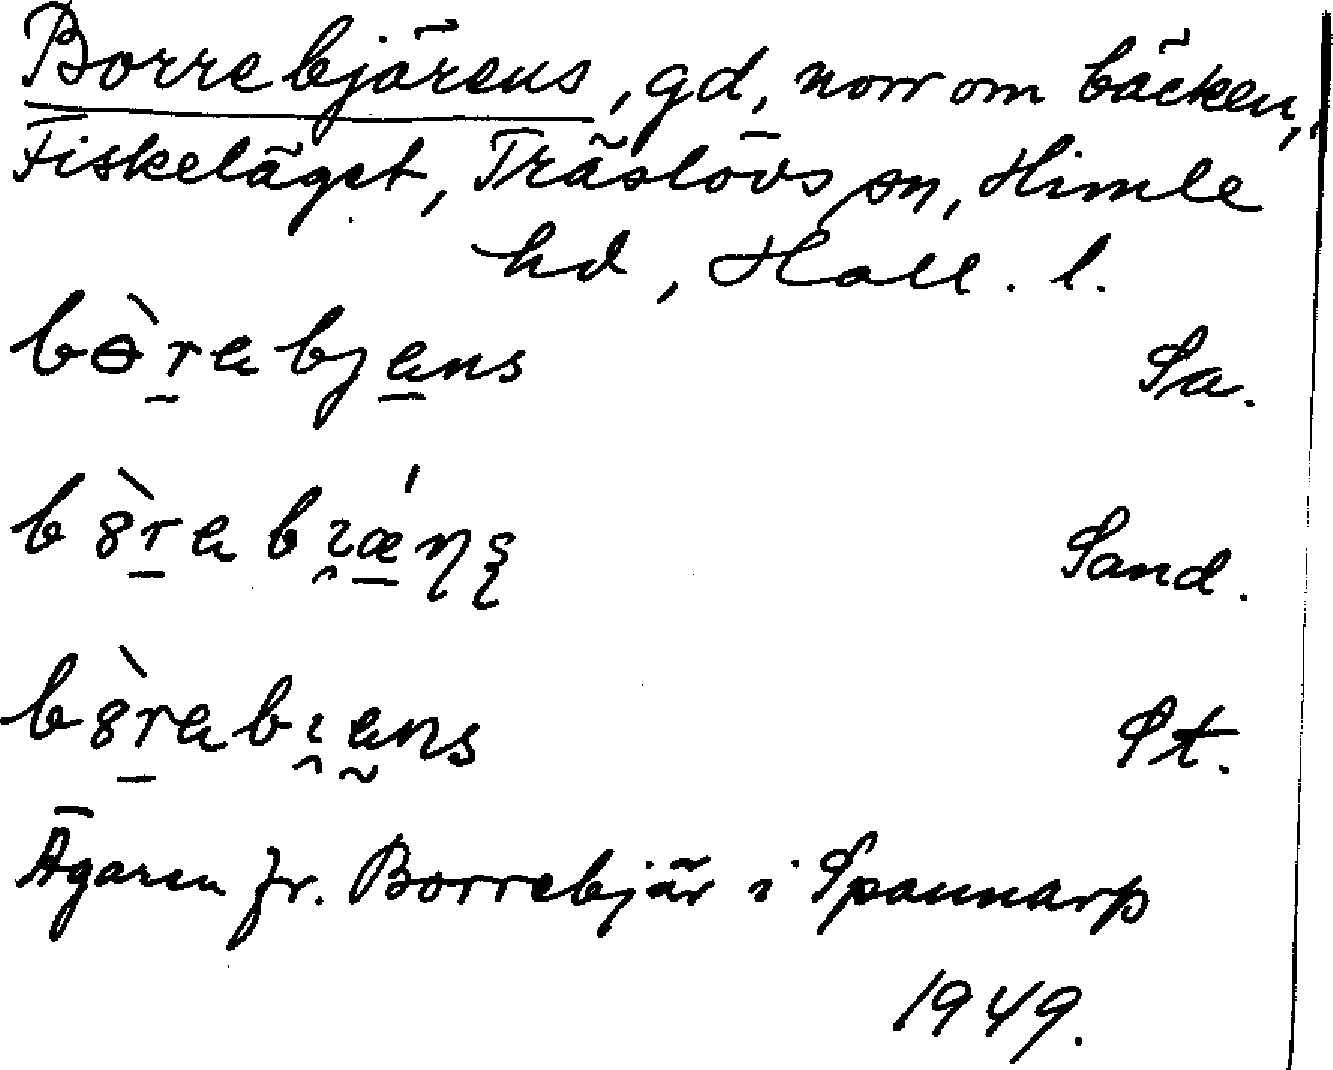 Borrebjärens, gd, norr om bäcken,
Fiskeläget, Träslövs sn, Himle
hd, Hall. l.
Sa.
Sand.
St.
Ägaren fr. Borrebjär i Spannarp
1949.